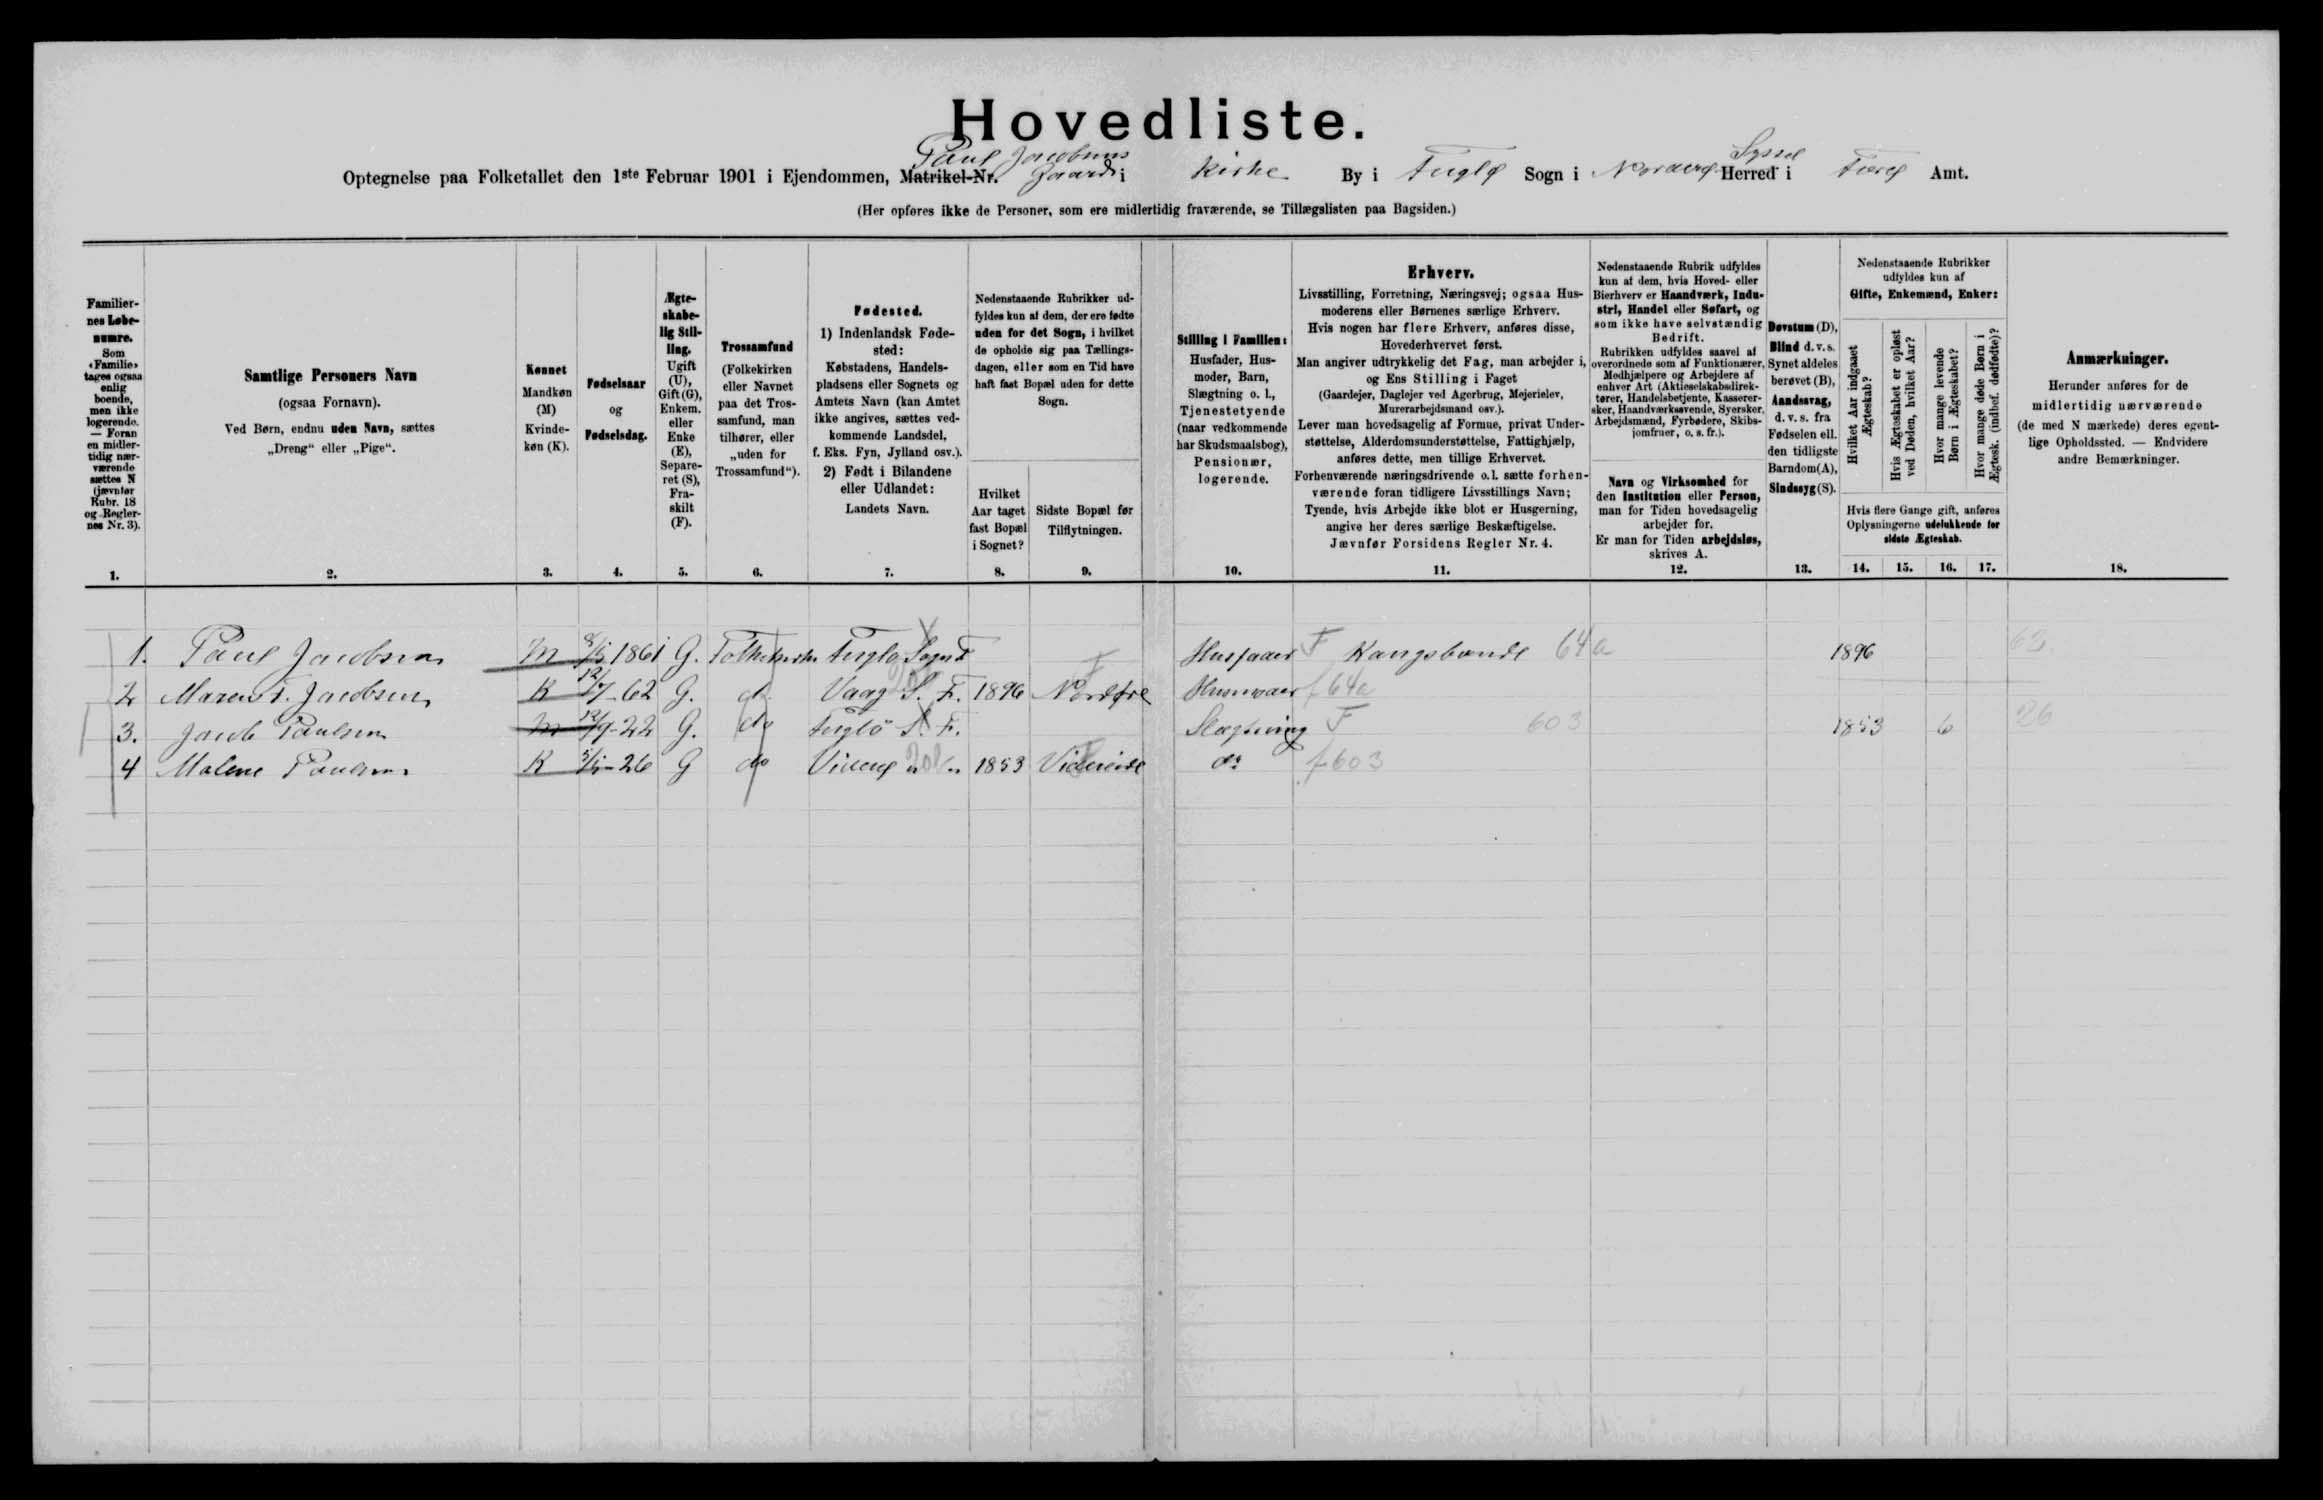 Hovedliste.
Paul Jacobsens
Syssel
Optegnelse paa Folketallet den 1ste Februar 1901 i Ejendommen, Matrikel-Nr. Gaard i Kirke By i Fuglø Sogn i Norderø Herred i Færø Amt.
(Her opføres ikke de Personer, som ere midlertidig fraværende, se Tillægslisten paa Bagsiden.)
Familier-
nes Løbe-
numre.
Som
«Familie»
tages ogsaa
enlig
boende,
men ikke
logerende.
— Foran
en midler-
tidig nær-
værende
sættes N
(jævnfør
Rubr. 18
og Regler-
nes Nr. 3).
1.
Samtlige Personers Navn
(ogsaa Fornavn).
Ved Børn, endnu uden Navn, sættes
„Dreng“ eller „Pige“.
2.
Kønnet
Mandkøn
(M)
Kvinde-
køn (K).
3.
Fødselsaar
og
Fødselsdag.
4.
Ægte-
skabe-
lig Stil-
ling.
Ugift
(U),
Gift (G),
Enkem.
eller
Enke
(E),
Separe-
ret (S),
Fra-
skilt
(F).
5.
Trossamfund
(Folkekirken
eller Navnet
paa det Tros-
samfund, man
tilhører, eller
„uden for
Trossamfund“).
6.
Fødested.
1) Indenlandsk Føde-
sted:
Købstadens, Handels-
pladsens eller Sognets og
Amtets Navn (kan Amtet
ikke angives, sættes ved-
kommende Landsdel,
f. Eks. Fyn, Jylland osv.).
2) Født i Bilandene
eller Udlandet:
Landets Navn.
7.
Nedenstaaende Rubrikker ud-
fyldes kun af dem, der ere fødte
uden for det Sogn, i hvilket
de opholde sig paa Tællings-
dagen, eller som en Tid have
haft fast Bopæl uden for dette
Sogn.
Hvilket
Aar taget
fast Bopæl
i Sognet?
8.
Sidste Bopæl før
Tilflytningen.
9.
Stilling i Familien:
Husfader, Hus-
moder, Barn,
Slægtning o. l.,
Tjenestetyende
(naar vedkommende
har Skudsmaalsbog),
Pensionær,
logerende.
10.
Erhverv.
Livsstilling, Forretning, Næringsvej; ogsaa Hus-
moderens eller Børnenes særlige Erhverv.
Hvis nogen har flere Erhverv, anføres disse,
Hovederhvervet først.
Man angiver udtrykkelig det Fag, man arbejder i,
og Ens Stilling i Faget
(Gaardejer, Daglejer ved Agerbrug, Mejerielev,
Murerarbejdsmand osv.).
Lever man hovedsagelig af Formue, privat Under-
støttelse, Alderdomsunderstøttelse, Fattighjælp,
anføres dette, men tillige Erhvervet.
Forhenværende næringsdrivende o. l. sætte forhen-
værende foran tidligere Livsstillings Navn;
Tyende, hvis Arbejde ikke blot er Husgerning,
angive her deres særlige Beskæftigelse.
Jævnfør Forsidens Regler Nr. 4.
11.
Nedenstaaende Rubrik udfyldes
kun af dem, hvis Hoved- eller
Bierhverv er Haandværk, Indu-
stri, Handel eller Søfart, og
som ikke have selvstændig
Bedrift.
Rubrikken udfyldes saavel af
overordnede som af Funktionærer,
Medhjælpere og Arbejdere af
enhver Art (Aktieselskabsdirek-
tører, Handelsbetjente, Kasserer-
sker, Haandværkssvende, Syersker,
Arbejdsmænd, Fyrbødere, Skibs-
jomfruer, o. s. fr.).
Navn og Virksomhed for
den Institution eller Person,
man for Tiden hovedsagelig
arbejder for.
Er man for Tiden arbejdsløs,
skrives A.
12.
Døvstum (D),
Blind d. v. s.
Synet aldeles
berøvet (B),
Aandssvag,
d. v. s. fra
Fødselen ell.
den tidligste
Barndom (A),
Sindssyg (S).
13.
Nedenstaaende Rubrikker
udfyldes kun af
Gifte, Enkemænd, Enker:
Hvilket Aar indgaaet
Ægteskab?
Hvis Ægteskabet er opløst
ved Døden, hvilket Aar?
Hvor mange levende
Børn i Ægteskabet?
Hvor mange døde Børn i
Ægtesk. (indbef. dødfødte)?
Hvis flere Gange gift, anføres
Oplysningerne udelukkende for
sidste Ægteskab.
14. 15. 16. 17.
Anmærkninger.
Herunder anføres for de
midlertidig nærværende
(de med N mærkede) deres egent-
lige Opholdssted. — Endvidere
andre Bemærkninger.
18.
1. Paul Jacobsen M 8/5 1861 G. Folkekirke Fuglø Sogn F Husfader F Kongsbonde 64a 1896 63
2 Maren F. Jacobsen K 12/7 62 G. do Vaag S. F. 1896 Nordøre Husmoder f 64a
3. Jacob Paulsen M 12/9-22 G. do Fuglö S. F. Slægtning F 603 1853 6 26
4 Malene Paulsen K 5/1-26 G do Viderø 1853 Videreide do f 603